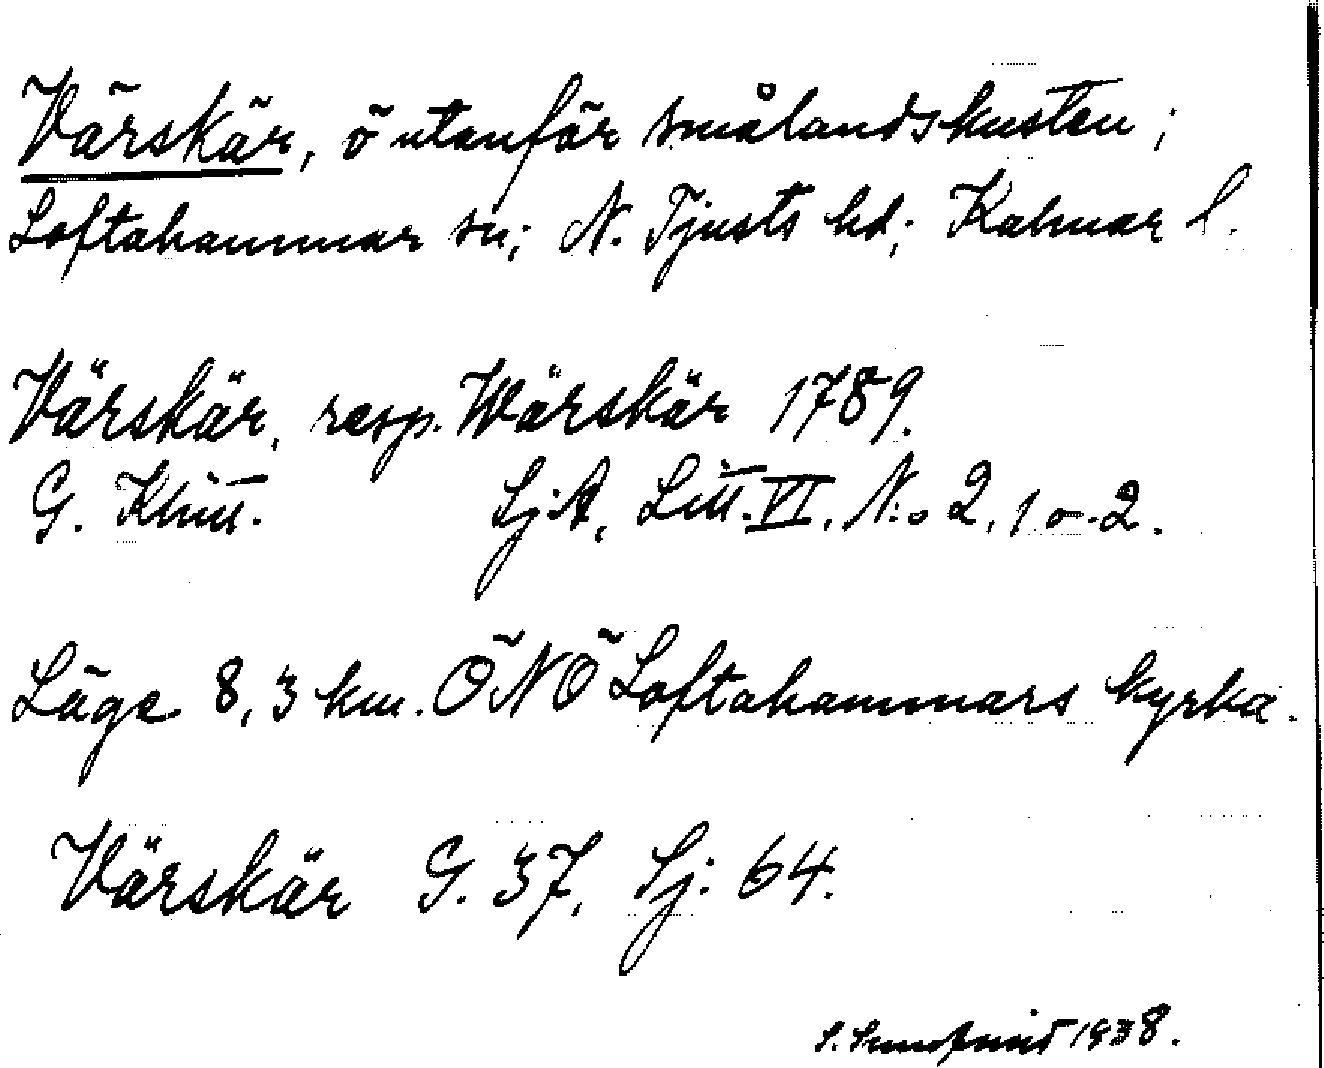 Värskär, ö utanför smålandskusten;
Loftahammar sn; N. Tjusts hd; Kalmar l.
Värskär, resp. Wärskär 1789.
G. Klint. Sj:A, Litt. VI. N:o 2, 1 o. 2.
Läge 8,3 km. ÖNÖ Loftahammars kyrka.
Värskär G. 37, Sj: 64.
S. 1938.